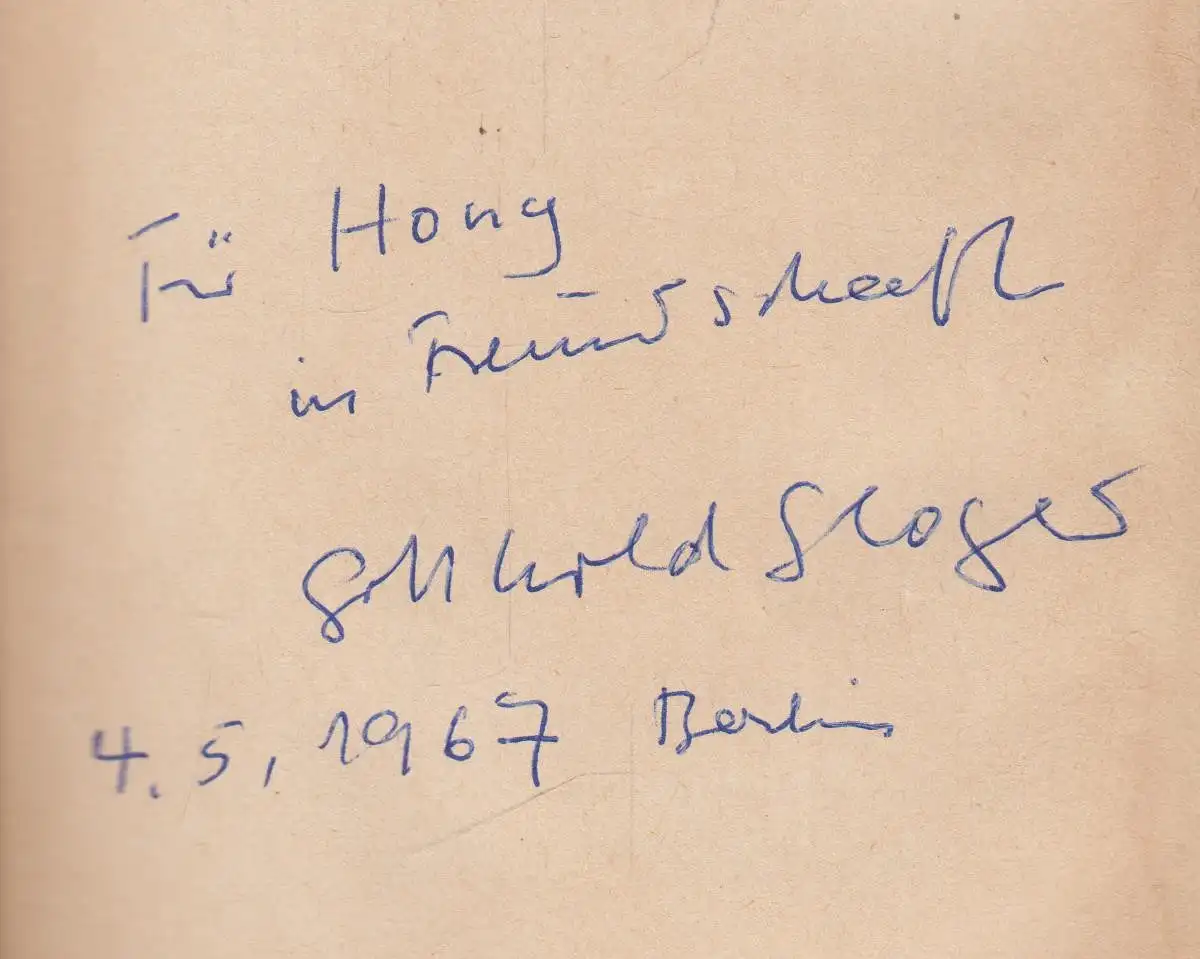 Für Hong
in Freundschaft
Gotthold Gloger
4.5.1967 Berlin